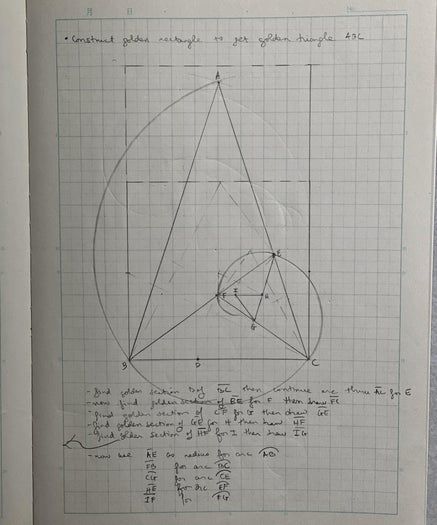 月 日 No.
• Construct golden rectangle to get golden triangle ABC
A
E
F I H
G
B D C
- find golden section D of BC then continue arc thru AC for E
- now find golden section of BE for F then draw FC
- find golden section of CF for G then draw GE
- find golden section of GE for H then draw HF
- find golden section of HF for I then draw IG
- now use AE as radius for arc AB
FB for arc BC
CG for arc CE
HE for arc EF
IF for FG